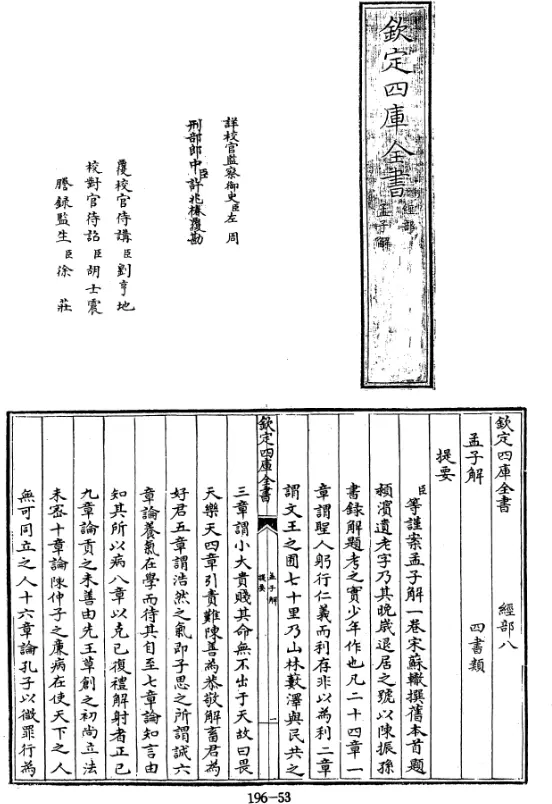 欽定四庫全書
經部
孟子解
詳校官監察御史臣左周
刑部郎中臣許兆椿覆勘
覆校官侍講臣劉亨地
校對官待詔臣胡士震
謄録監生臣徐莊
欽定四庫全書
經部八
孟子解
四書類
提要
臣等謹案孟子解一卷宋蘇轍撰舊本首題
潁濱遺老字乃其晚嵗退居之號以陳振孫
書録解題考之實少年作也凡二十四章一
章謂聖人躬行仁義而利存非以為利二章
謂文王之囿七十里乃山林藪澤與民共之
欽定四庫全書
孟子解
提要
一
三章謂小大貴賤其命無不出于天故曰畏
天樂天四章引責難陳善為恭敬解畜君為
好君五章謂浩然之氣即子思之所謂誠六
章論養氣在學而待其自至七章論知言由
知其所以病八章以克已復禮解射者正已
九章論貢之未善由先王草創之初尚立法
未密十章論陳仲子之廉病在使天下之人
無可同立之人十六章論孔子以微罪行為
196-53